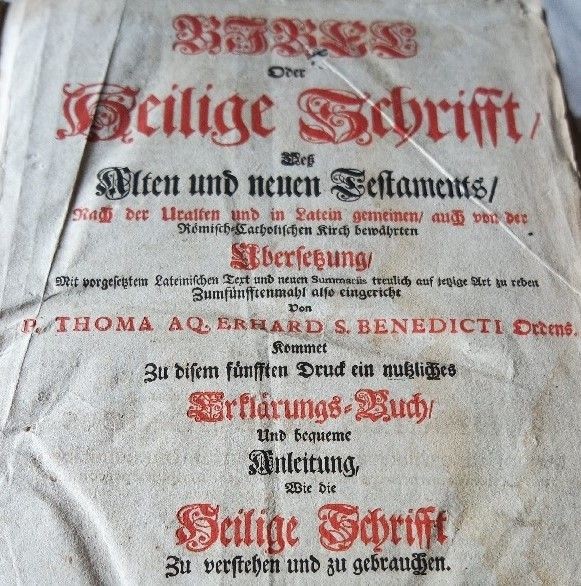 BIBEL
Oder
Heilige Schrifft/
Deß
Alten und neuen Testaments/
Nach der Uralten und in Latein gemeinen/ auch von der
Römisch-Catholischen Kirch bewährten
Übersetzung/
Mit vorgesetztem Lateinischen Text und neuen Summariis treulich auf jetzige Art zu reden
Zum fünfftenmahl also eingericht
Von
P. THOMA AQ. ERHARD S. BENEDICTI Ordens.
Kommet
Zu disem fünfften Druck ein nutzliches
Erklärungs-Buch/
Und bequeme
Anleitung,
Wie die
Heilige Schrifft
Zu verstehen und zu gebrauchen.